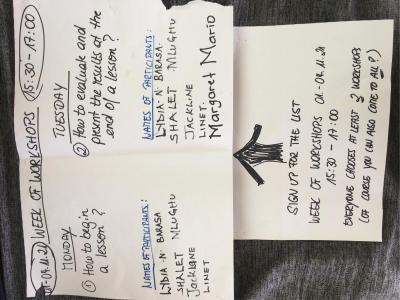 01-04.11.21 WEEK OF WORKSHOPS 15:30 - 17:00
MONDAY
① How to begin
a lesson?
NAMES OF PARTICIPANTS:
LYDIA ·N· BARASA
SHALET MLUGHU
JACKLINE
LINET
TUESDAY
② How to evaluate and
present the results at the
end of a lesson?
NAMES OF PARTICIPANTS:
LYDIA ·N· BARASA.
SHALET MLUGHU
JACKLINE
LINET.
Margaret Mario
SIGN UP FOR THE LIST
WEEK OF WORKSHOPS 01.-04.11.21
15:30 - 17:00
EVERYONE CHOOSES AT LEAST WORKSHOPS
(OF COURSE YOU CAN ALSO COME TO ALL )